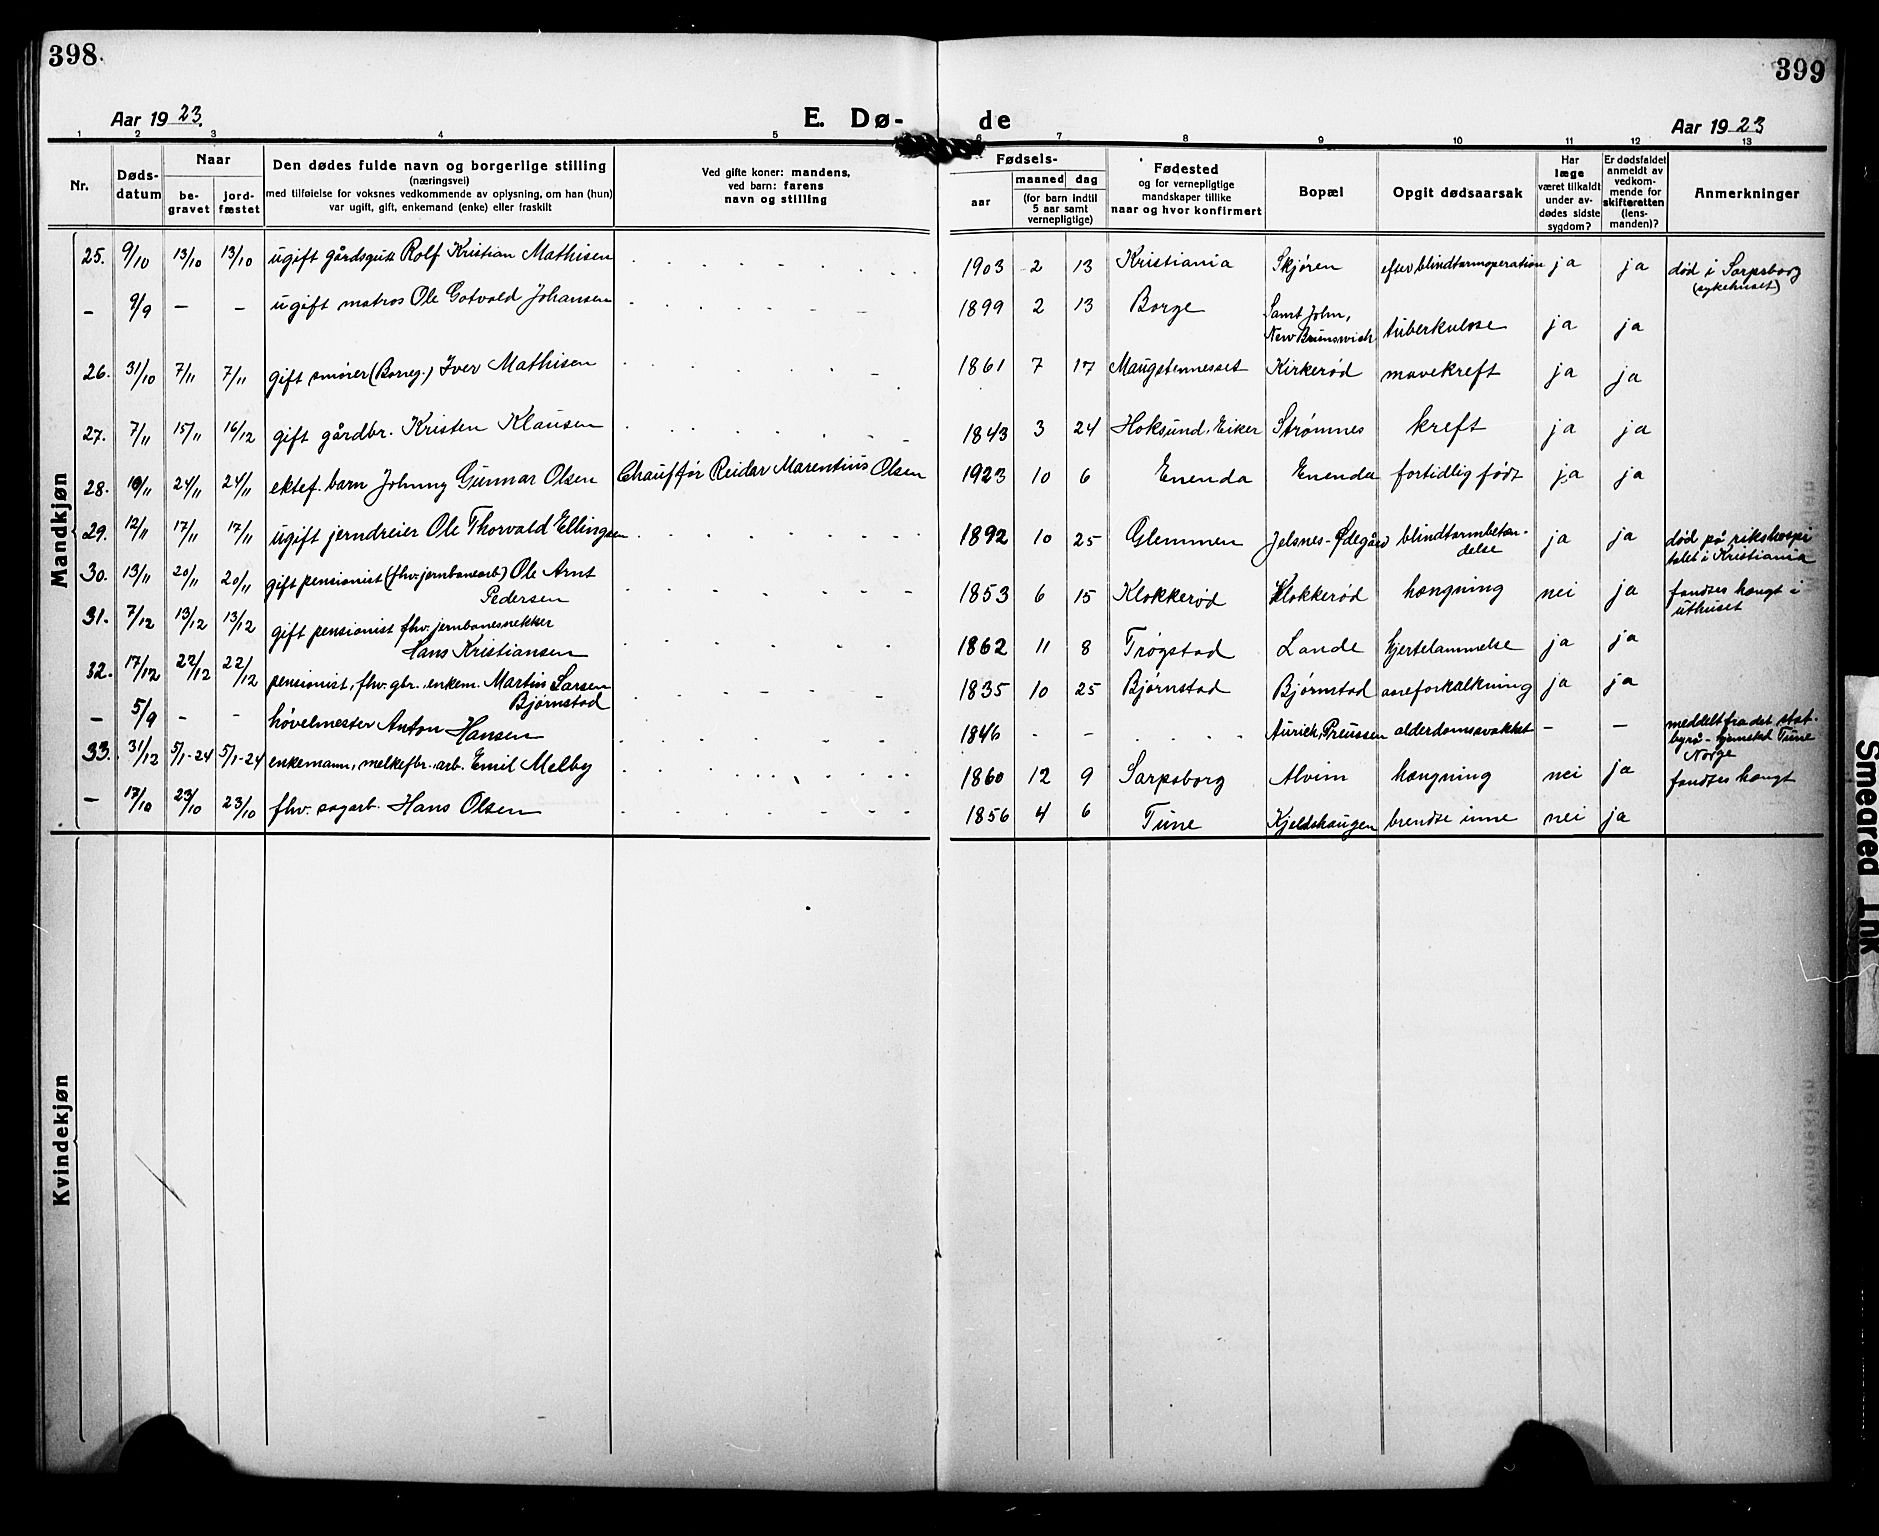 398.
399
Aar 1923.
E. Dø-
de
Aar 1923
1 2 3 4 5 6 7 8 9 10 11 12 13
Nr.
Døds-
datum
Naar
be-
gravet
jord-
fæstet
Den dødes fulde navn og borgerlige stilling
(næringsvei)
med tilføielse for voksnes vedkommende av oplysning, om han (hun)
var ugift, gift, enkemand (enke) eller fraskilt
Ved gifte koner: mandens,
ved barn: farens
navn og stilling
Fødsels-
aar
maaned
dag
(for barn indtil
5 aar samt
vernepligtige)
Fødested
og for vernepligtige
mandskaper tillike
naar og hvor konfirmert
Bopæl
Opgit dødsaarsak
Har
læge
været tilkaldt
under av-
dødes sidste
sygdom?
Er dødsfaldet
anmeldt av
vedkom-
mende for
skifteretten
(lens-
manden)?
Anmerkninger
Mandkjøn
25. 9/10 13/10 13/10 ugift gårdsgutt Rolf Kristian Mathisen 1903 2 13 Kristiania Skjøren efter blindtarmoperation ja ja død i Sarpsborg
(sykehuset)
- 9/9 - - ugift matros Ole Gotvald Johansen 1899 2 13 Borge Saint John,
New Brunswich tuberkulose ja ja
26. 31/10 7/11 7/11 gift smører (Borreg.) Iver Mathisen 1861 7 17 Maugstenneset Kirkerød mavekreft ja ja
27. 7/11 15/11 16/12 gift gårdbr. Kristen Klausen 1843 3 24 Hoksund, Eiker Strømnes kreft ja ja
28. 10/11 24/11 24/11 ektef. barn Johnny Gunnar Olsen Chauffør Reidar Marentius Olsen 1923 10 6 Enenda Enenda fortidlig født ja ja
29. 12/11 17/11 17/11 ugift jerndreier Ole Thorvald Ellingsen 1892 10 25 Glemmen Jelsnes-Ødegård blindtarmbeten-
delse ja ja død på rikshospi
talet i Kristiania
30. 13/11 20/11 20/11 gift pensionist (fhv. jernbanearb) Ole Arnt
Pedersen 1853 6 15 Klokkerød Klokkerød hængning nei ja fandtes hængt i
uthuset
31. 7/12 13/12 13/12 gift pensionist fhv. jernbanesnekker
Hans Kristiansen 1862 11 8 Trøgstad Lande hjertelammelse ja ja
32. 17/12 22/12 22/12 pensionist, fhv. gbr., enkem. Martin Larsen
Bjørnstad 1835 10 25 Bjørnstad Bjørnstad aareforkalkning ja ja
- 5/9 - - høvelmester Anton Hansen 1846 - - Aurich, Preussen alderdomssvakhet - - meddelt fra det stat.
byrå - hjemsted Tune
Norge
33. 31/12 5/1-24 5/1-24 enkemann, melkefbr. arb. Emil Melby 1860 12 9 Sarpsborg Alvim hængning nei ja fandtes hængt
- 17/10 23/10 23/10 fhv. sagarb. Hans Olsen 1856 4 6 Tune Kjeldshaugen brendte inne nei ja
Kvindekjøn
Smeared Ink